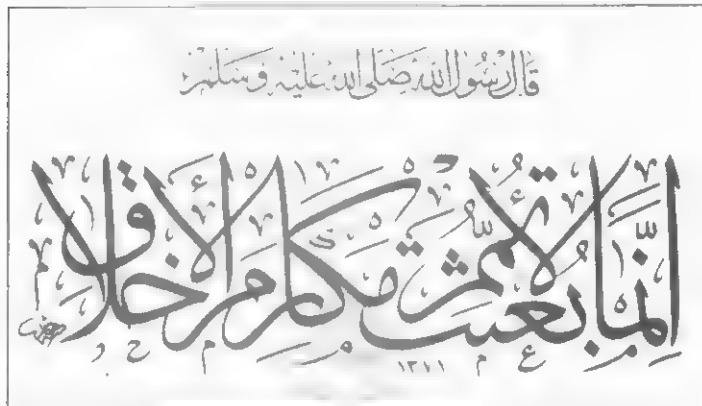 قال رسول الله صلى الله عليه وسلم
إنما بعثت لأتمم مكارم الأخلاق
١٣٧١